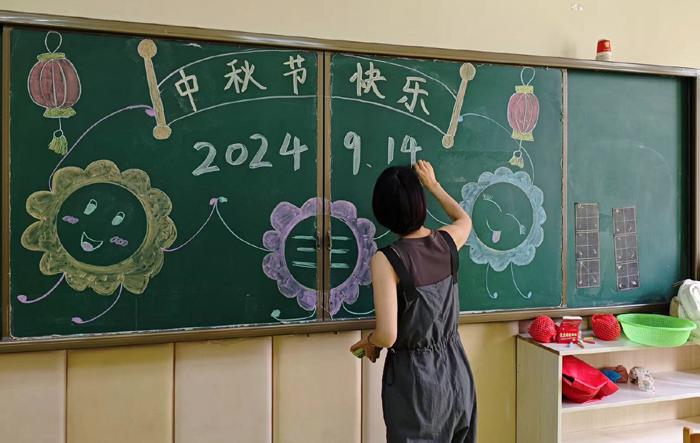 中秋节快乐
2024 9.14